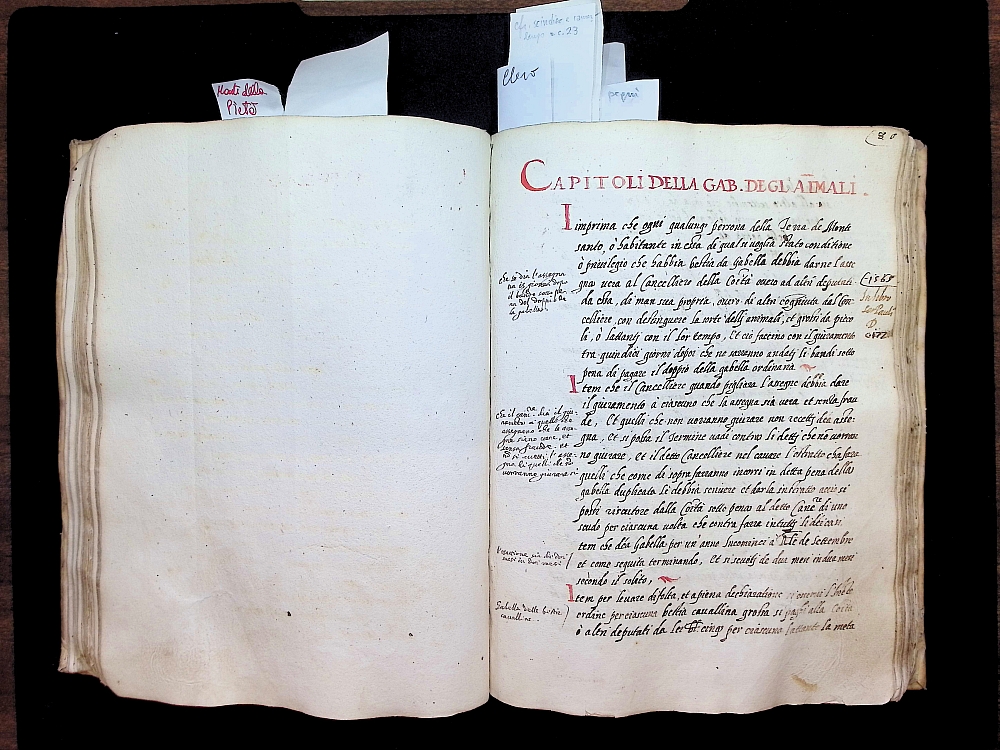 Monti della
Pietà
clero
pegni
CAPITOLI DELLA GAB. DEGL'AĪMALI
Imprima che ogni qualunq; persona della Terra de Monte
santo, ò habitante in essa di qual si voglia stato conditione
ò privilegio che habbia bestia da gabella debbia darne l'asse
gna vera al Cancelliero della Coītà overo ad altri deputati
da essa, di man sua propria, overo di altri cognita dal Can
celliere, con destinguere la sorte delli animali, et grossi da pico
li, ò lattanti con il lor tempo, Et ciò faccino con il giuramento
tra quindici giorni dopoi che ne saranno andati li bandi sotto
pena di pagare il doppio della gabella ordinaria
Item che il Cancelliere quando pigliara l'assegne debbia dare
il giuramento à ciascuno che la assegna sia vera et senza frau
de, Et quelli che non vorranno giurare non recetti d̄ca asse
gna, et si possa il termine vadi contro li detti che nō vorran
no giurare, Et il detto Cancelliere nel cavare l'estratto che farà
quelli che come di sopra saranno incorsi in detta pena della
gabella duplicata li debbia scrivere et darla in
possi riscotere dalla Coītà sotto pena al detto Canc.re di uno
scudo per ciascuna volta che contra farrà
tem che d̄ca Gabella per un anno Incominci à dì de Settembre
et come seguita terminando, Et si scuoti de dua mesi in dua mesi
secondo il solito,
Item per levare di et a piena dechiaratione
ordine per ciascuna bestia cavallina grossa si paghi alla Coītà
ò altri deputati da lei b. cinq; per ciascuno lattante la metà
che si dia l'assegna
il bando sotto pe
na del doppio de
la gabella
che il canc. dia il giu
ramento a quelli che
assegnano che le asse
gne siano vere, et
senza fraude et
nō si recetti l'asse
gna di quelli che nō
vorranno giurare
mesi in dui mesi
Gabella delle bestie
cavalline
1568
In libro